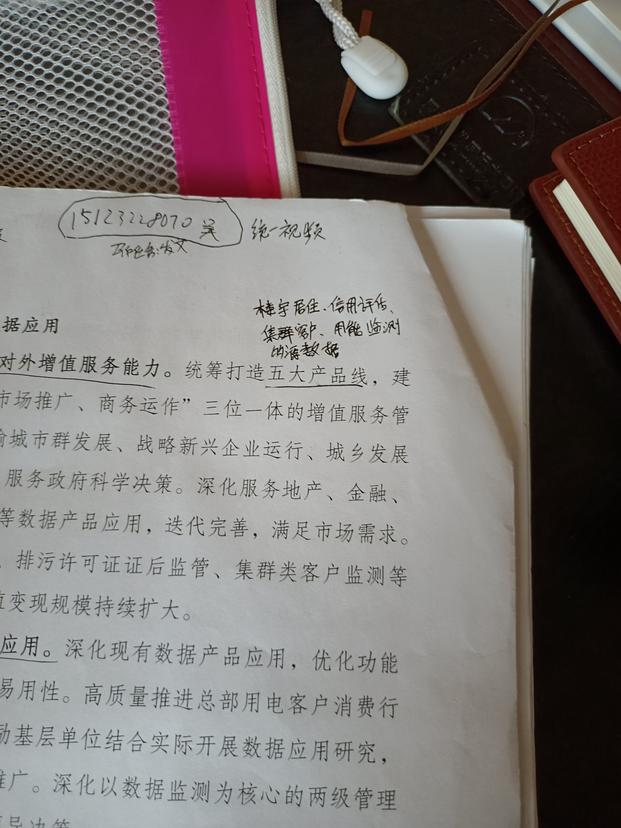 15123228070 吴 统一视频
楼宇居住、信用评估、
集群客户、用能监测
能源数据
据应用
对外增值服务能力。统筹打造五大产品线，建
市场推广、商务运作”三位一体的增值服务管
渝城市群发展、战略新兴企业运行、城乡发展
服务政府科学决策。深化服务地产、金融、
等数据产品应用，迭代完善，满足市场需求。
、排污许可证证后监管、集群类客户监测等
值变现规模持续扩大。
应用。深化现有数据产品应用，优化功能
易用性。高质量推进总部用电客户消费行
励基层单位结合实际开展数据应用研究，
推广。深化以数据监测为核心的两级管理